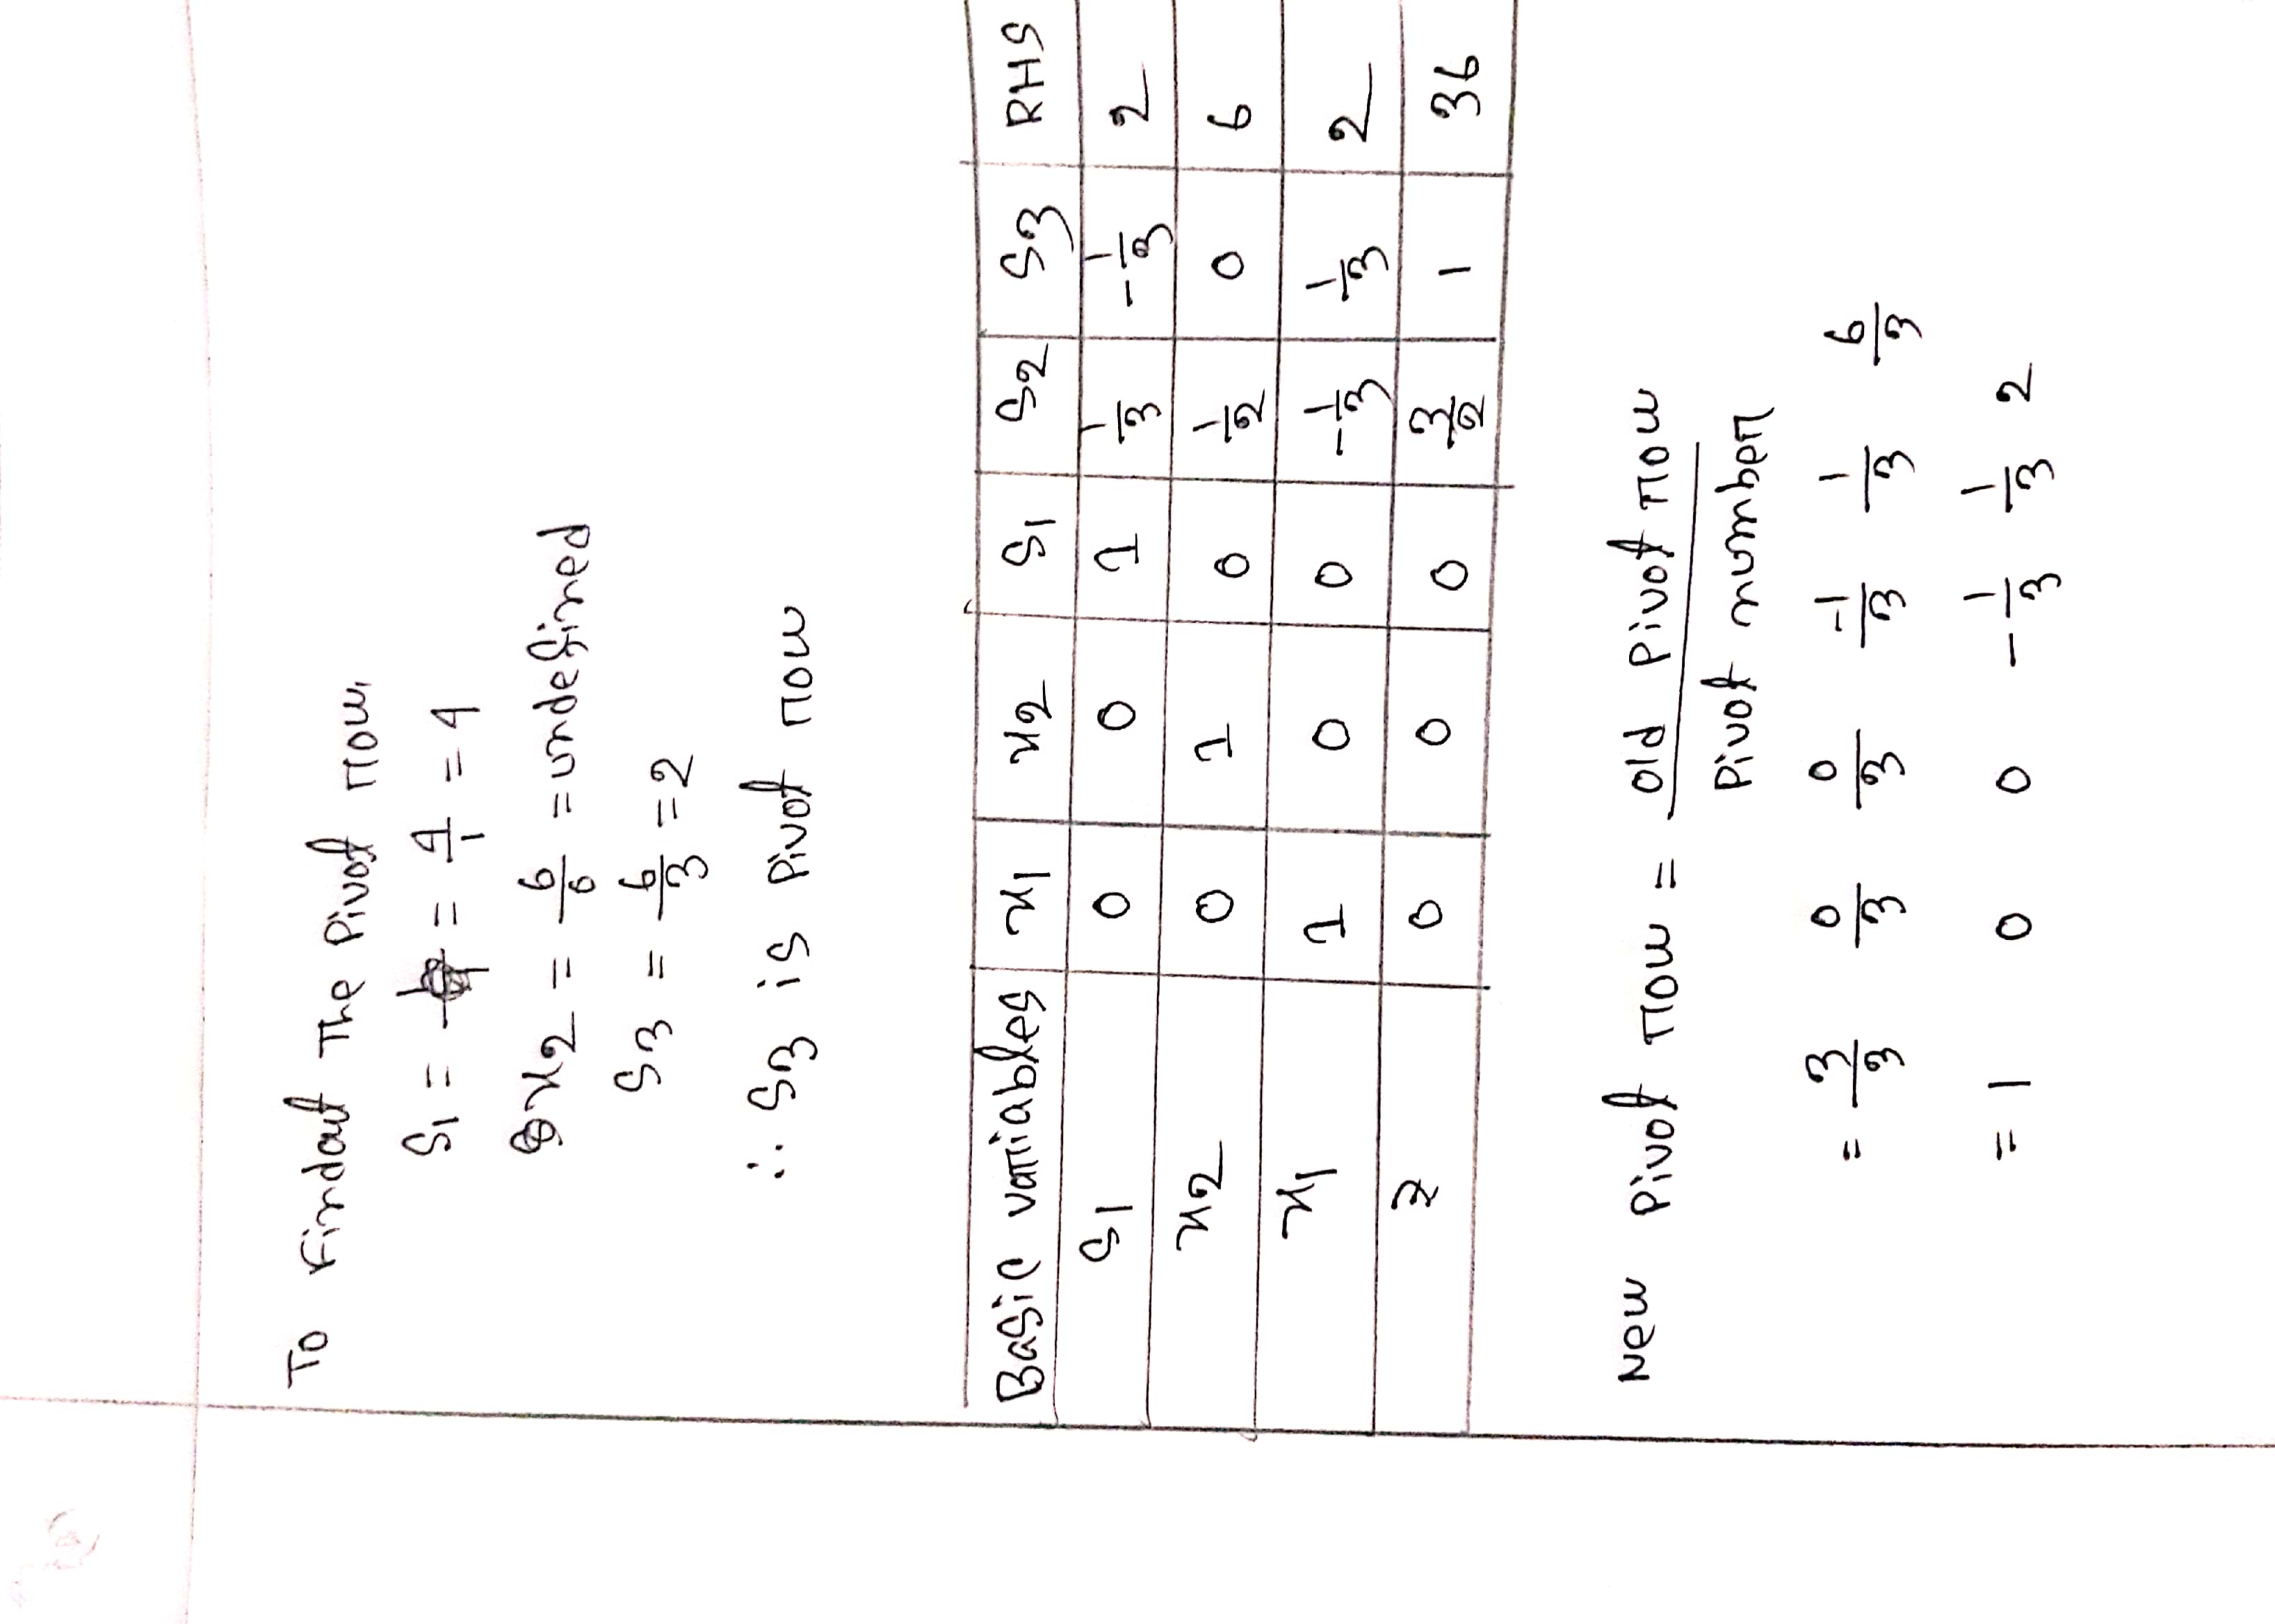 To Findout The Pivot row,
S1 = = 4/1 = 4
x2 = 6/0 = undefined
S3 = 6/3 = 2
∴ S3 is Pivot row
Basic variables x1 x2 S1 S2 S3 RHS
S1 0 0 1 1/3 -1/3 2
x2 0 1 0 1/2 0 6
x1 1 0 0 -1/3 1/3 2
z 0 0 0 3/2 1 36
New Pivot row = old Pivot row
Pivot number
= 3/3 0/3 0/3 -1/3 1/3 6/3
= 1 0 0 -1/3 1/3 2